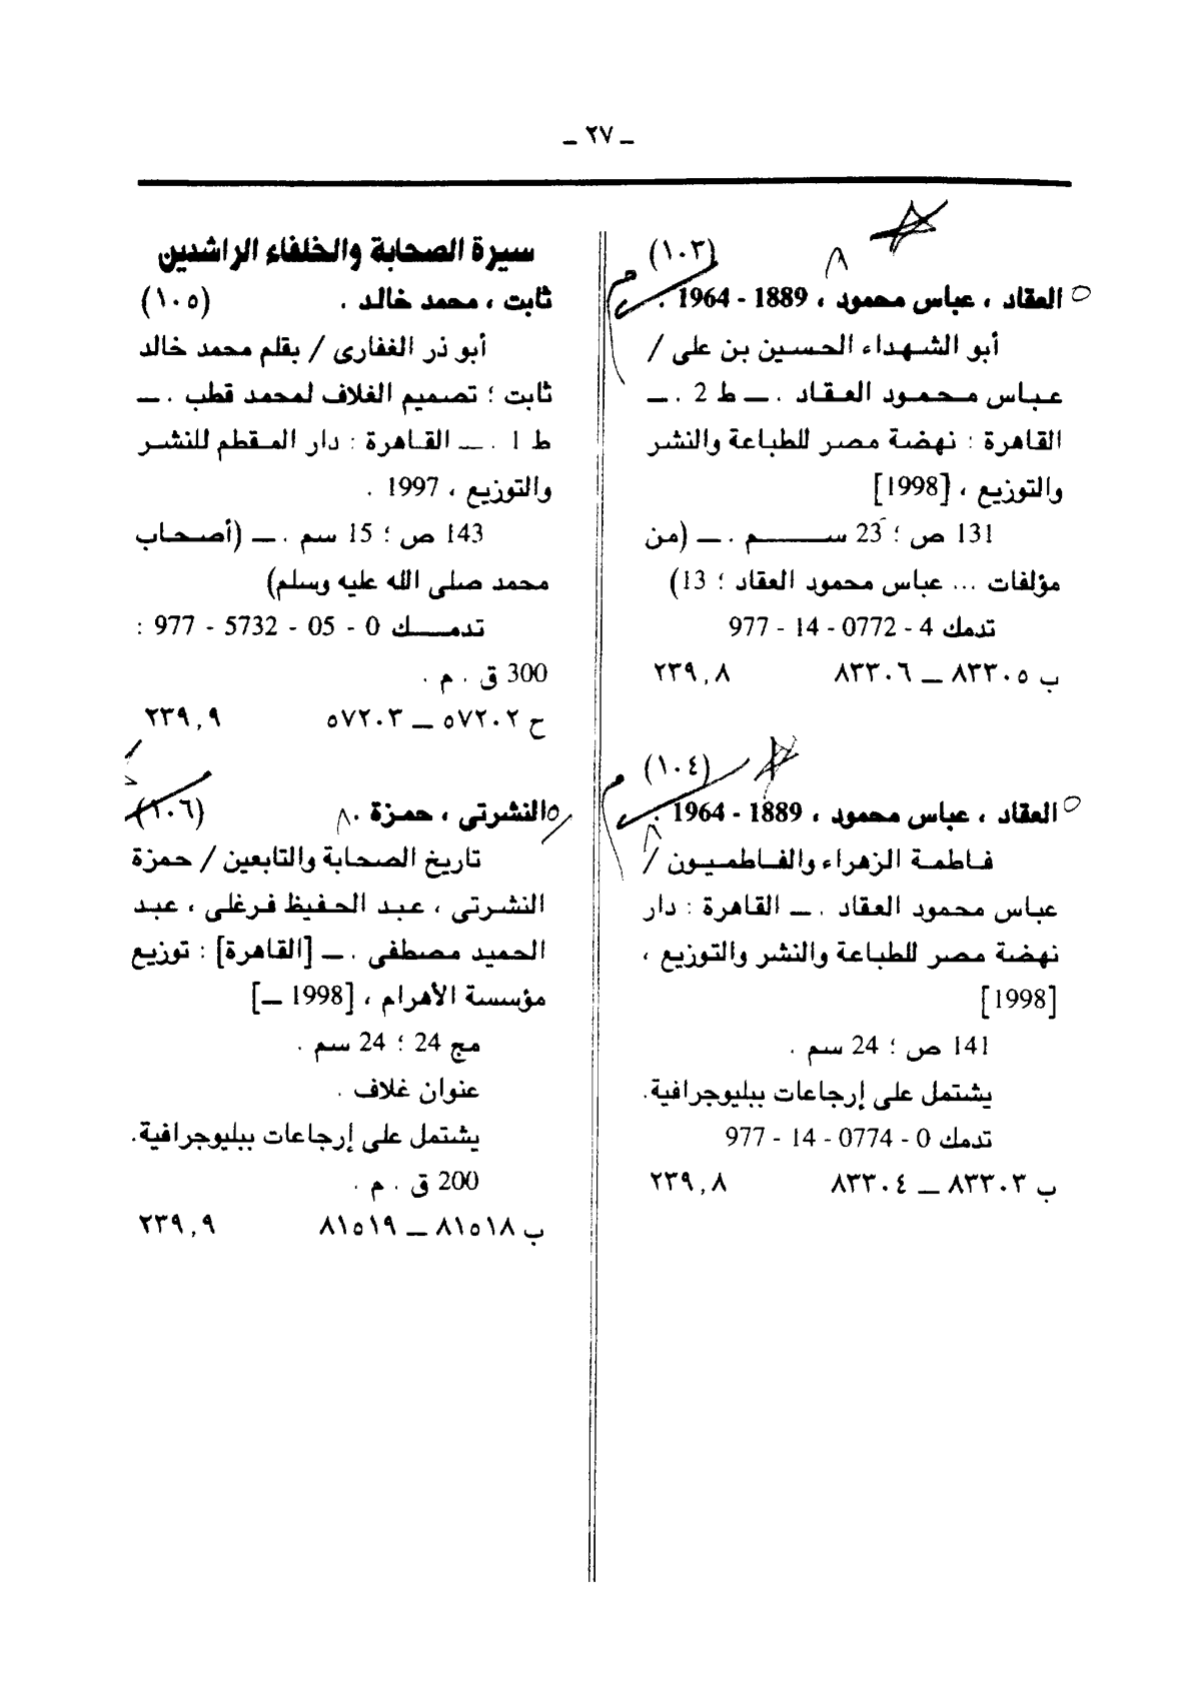 ـ ٢٧ ـ
(١٠٣)
العقاد ، عباس محمود ، 1889 - 1964 .
أبو الشهداء الحسين بن على /
عباس محمود العقاد . ــ ط 2 . ــ
القاهرة : نهضة مصر للطباعة والنشر
والتوزيع ، [1998]
131 ص ؛ 23 سم . ــ (من
مؤلفات ... عباس محمود العقاد ؛ 13)
تدمك 4 - 0772 - 14 - 977
ب ٨٣٣٠٥ ــ ٨٣٣٠٦ ٢٣٩,٨
(١٠٤)
العقاد ، عباس محمود ، 1889 - 1964 .
فاطمة الزهراء والفاطميون /
عباس محمود العقاد . ــ القاهرة : دار
نهضة مصر للطباعة والنشر والتوزيع ،
[1998]
141 ص ؛ 24 سم .
يشتمل على إرجاعات ببليوجرافية.
تدمك 0 - 0774 - 14 - 977
ب ٨٣٣٠٣ ــ ٨٣٣٠٤ ٢٣٩,٨
سيرة الصحابة والخلفاء الراشدين
ثابت ، محمد خالد . (١٠٥)
أبو ذر الغفارى / بقلم محمد خالد
ثابت ؛ تصميم الغلاف لمحمد قطب . ــ
ط 1 . ــ القاهرة : دار المقطم للنشر
والتوزيع ، 1997 .
143 ص ؛ 15 سم . ــ (أصحاب
محمد صلى الله عليه وسلم)
تدمك 0 - 05 - 5732 - 977 :
300 ق . م .
ح ٥٧٢٠٢ ــ ٥٧٢٠٣ ٢٣٩,٩
النشرتى ، حمزة . (١٠٦)
تاريخ الصحابة والتابعين / حمزة
النشرتى ، عبد الحفيظ فرغلى ، عبد
الحميد مصطفى . ــ [القاهرة] : توزيع
مؤسسة الأهرام ، [1998 ــ]
مج 24 ؛ 24 سم .
عنوان غلاف .
يشتمل على إرجاعات ببليوجرافية.
200 ق . م .
ب ٨١٥١٨ ــ ٨١٥١٩ ٢٣٩,٩